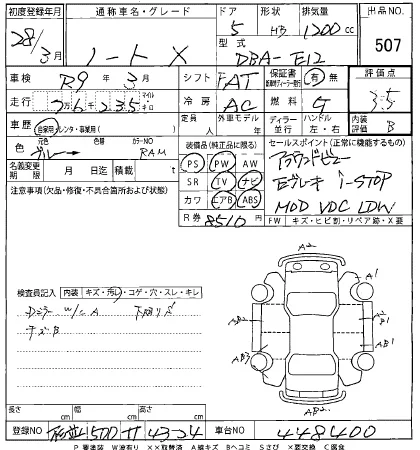 初度登録年月 通称車名・グレード ドア 形状 排気量 出品NO
28/3月 ノート X 5 HB 1200cc 507
型式 DBA-E12
車検 R9年3月 シフト FAT 保証書 有・無 評価点
走行 76235 マイル キロ 冷房 AC 燃料 G 3.5
車歴 自家用・レンタ・事業用( ) 定員 人 外車モデル 年 ディーラー・並行 ハンドル 左・右 内装評価 B
色 元色 カラーNO RAM 装備品(純正品に限る) セールスポイント(正常に機能するもの)
ブルー PS PW AW アラウンドビュー
名義変更期限 月 日迄 積載 t SR TV ナビ Eブレーキ i-STOP
注意事項(欠品・修復・不具合箇所および状態) カワ エアB ABS MOD VDC LDW
R券 8510円 FW キズ・ヒビ割・リペア跡・X要
A2
A1
検査員記入 内装 キズ・汚レ・コゲ・穴・スレ・キレ
AB2 AB1
Dミラー w/c A 下廻りサビ
AB3 AB1
チズB
AB2
長さ cm 幅 cm 高さ cm
登録NO 500 サ 43-24 車台NO 448400
P 要塗装 W波有り ××取替済 A線キズ Bヘコミ Sさび ×要交換 C腐食